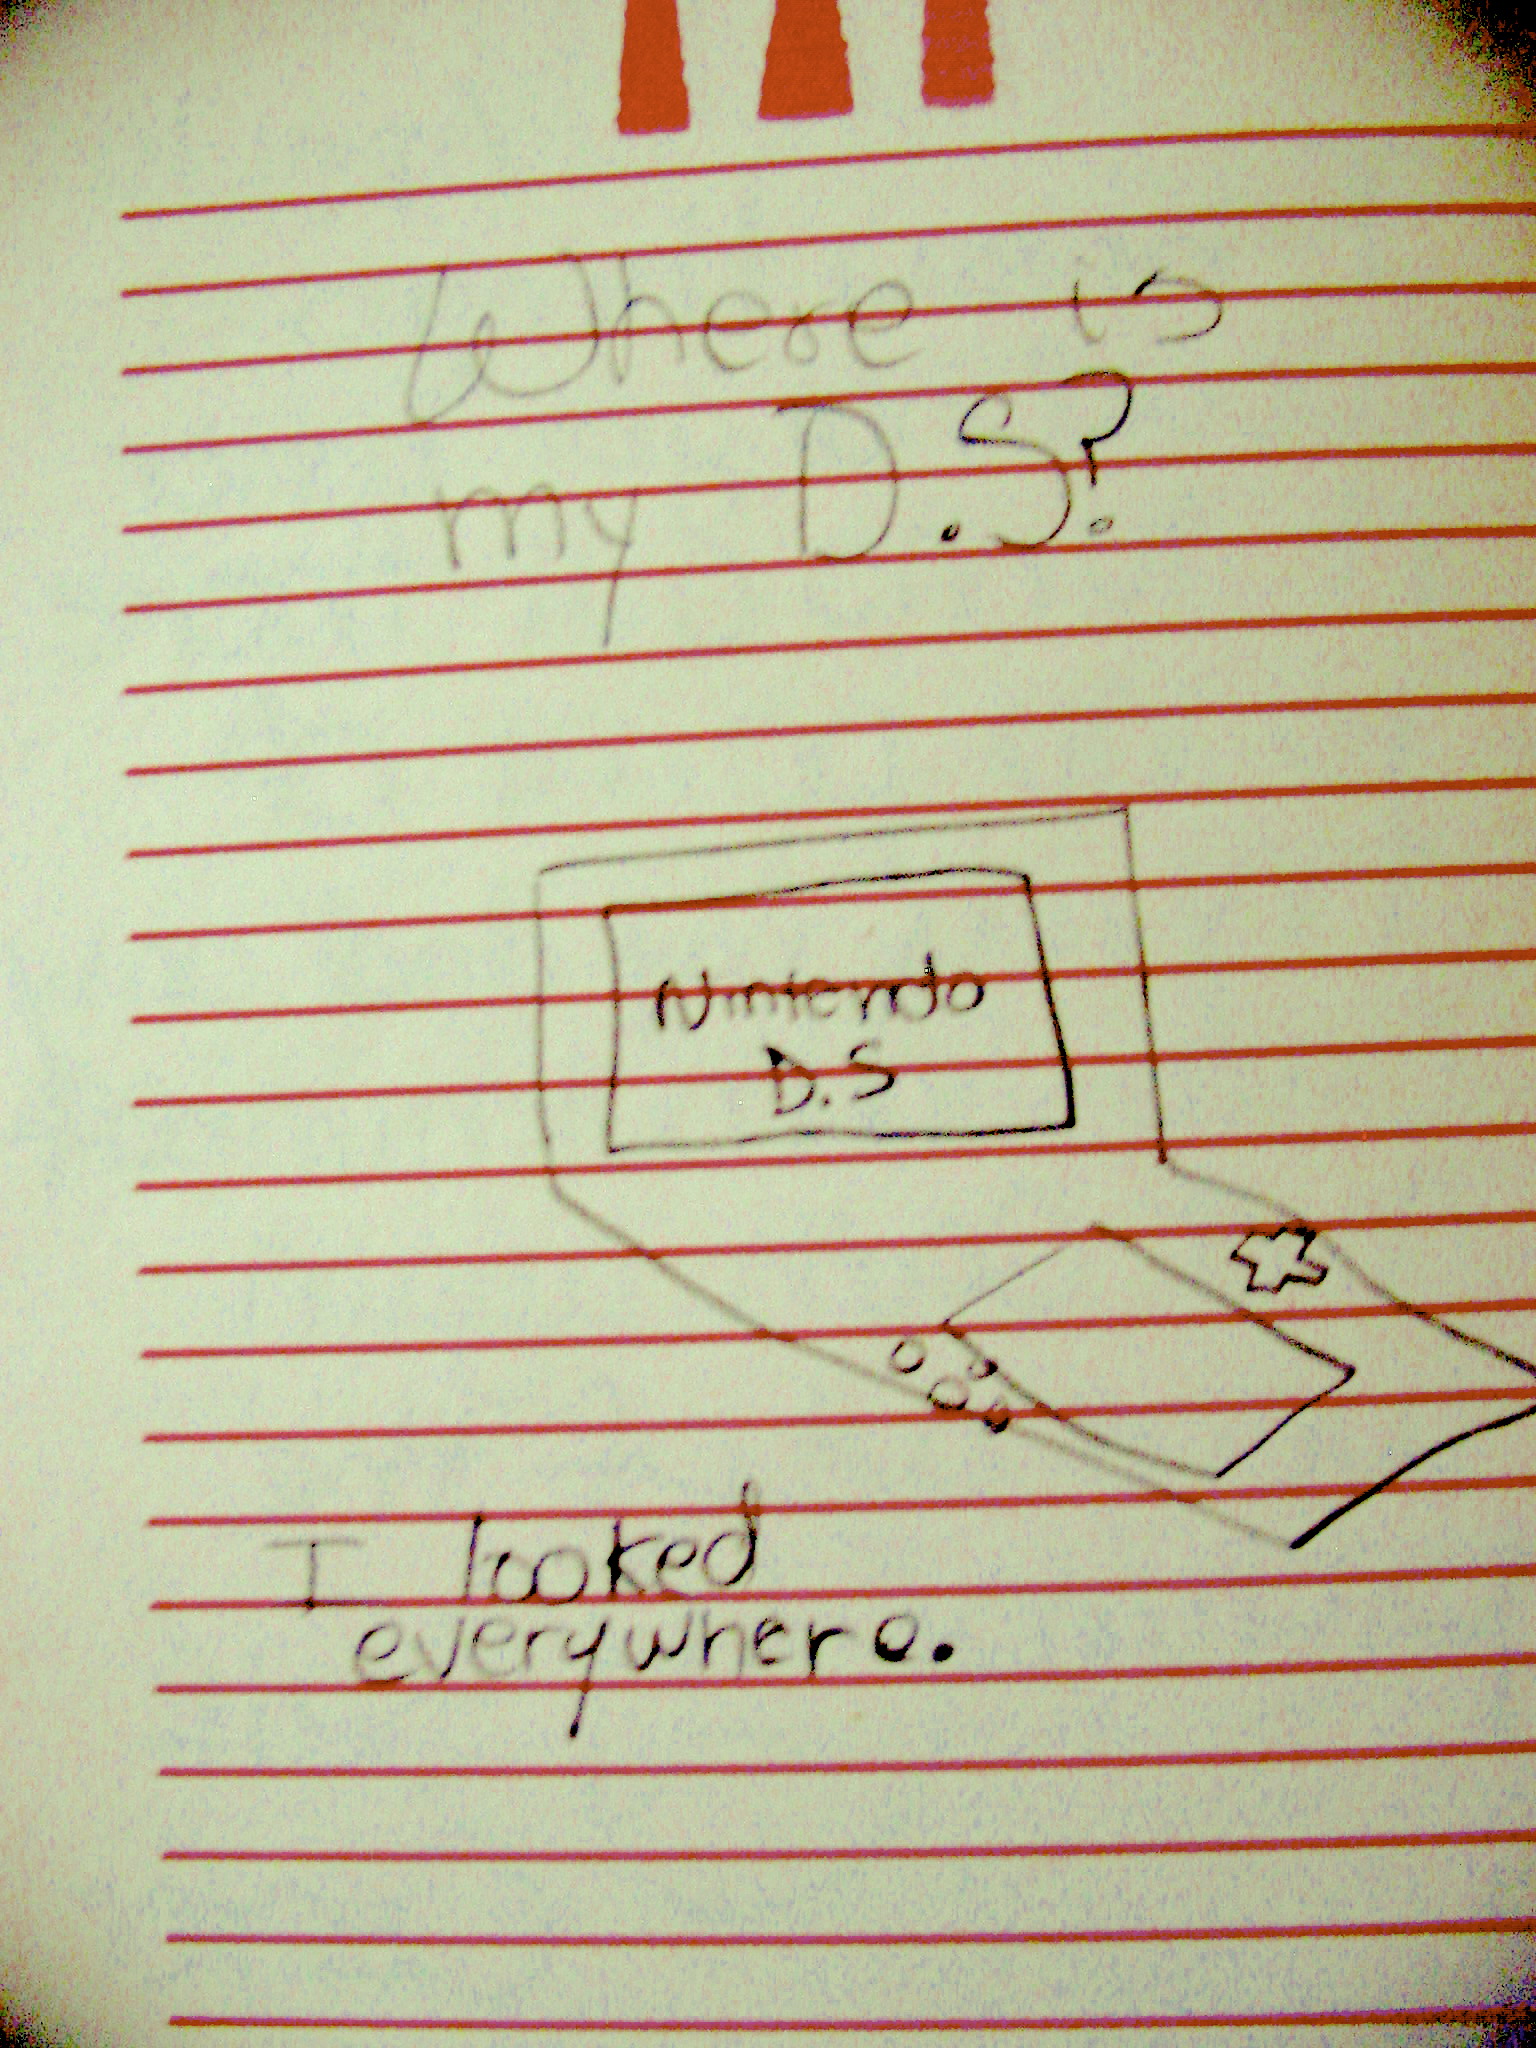 Where is
my D.S?
Nintendo
D.S
I looked
everywhere.